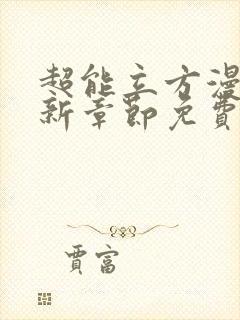 超能立方漫
新章節免費
賈富